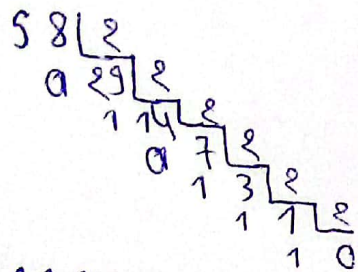 58 2
0 29 2
1 14 2
0 7 2
1 3 2
1 1 2
1 0